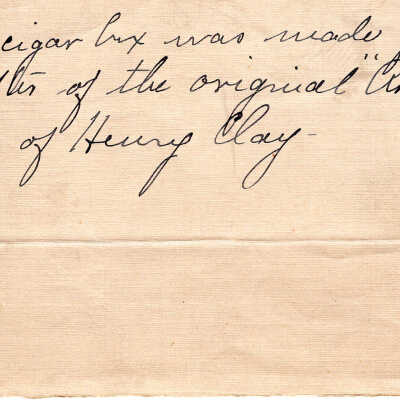 cigar box was made
of the original "
of Henry Clay-